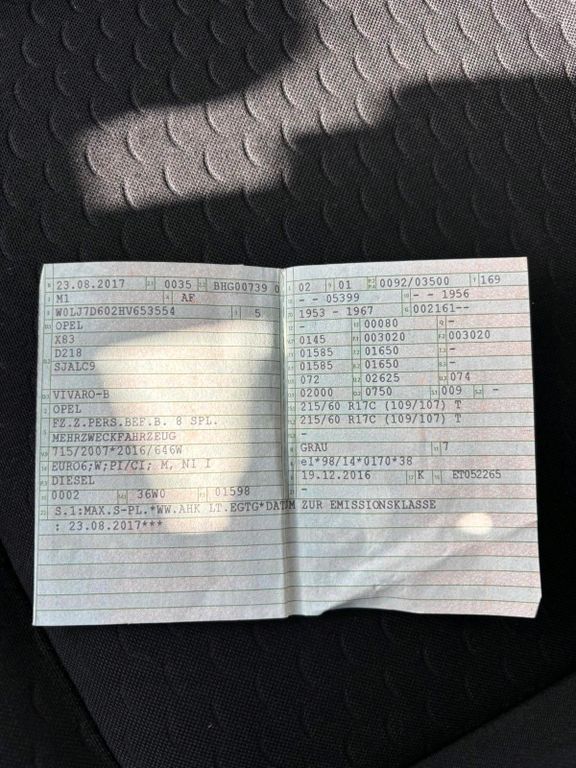 23.08.2017 0035 BHG00739 0
M1 AF
W0LJ7D602HV653554 5
OPEL
X83
D218
SJALC9
VIVARO-B
OPEL
FZ.Z.PERS.BEF.B. 8 SPL.
MEHRZWECKFAHRZEUG
715/2007*2016/646W
EURO6;W;PI/CI; M, NI I
DIESEL
0002 36W0 01598
S.1:MAX.S-PL.*WW.AHK LT.EGTG*DATUM ZUR EMISSIONKLASSE
: 23.08.2017***
02 01 0092/03500 169
- - 05399 - - 1956
1953 - 1967 002161--
- 00080 -
0145 003020 003020
01585 01650 -
01585 01650 -
072 02625 074
02000 0750 009 -
215/60 R17C (109/107) T
215/60 R17C (109/107) T
-
GRAU 7
e1*98/14*0170*38
19.12.2016 K ET052265
-